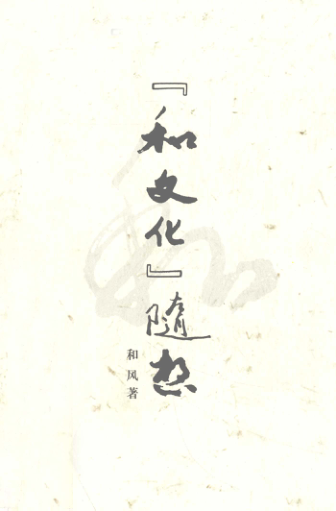 『和文化』随想
和风著